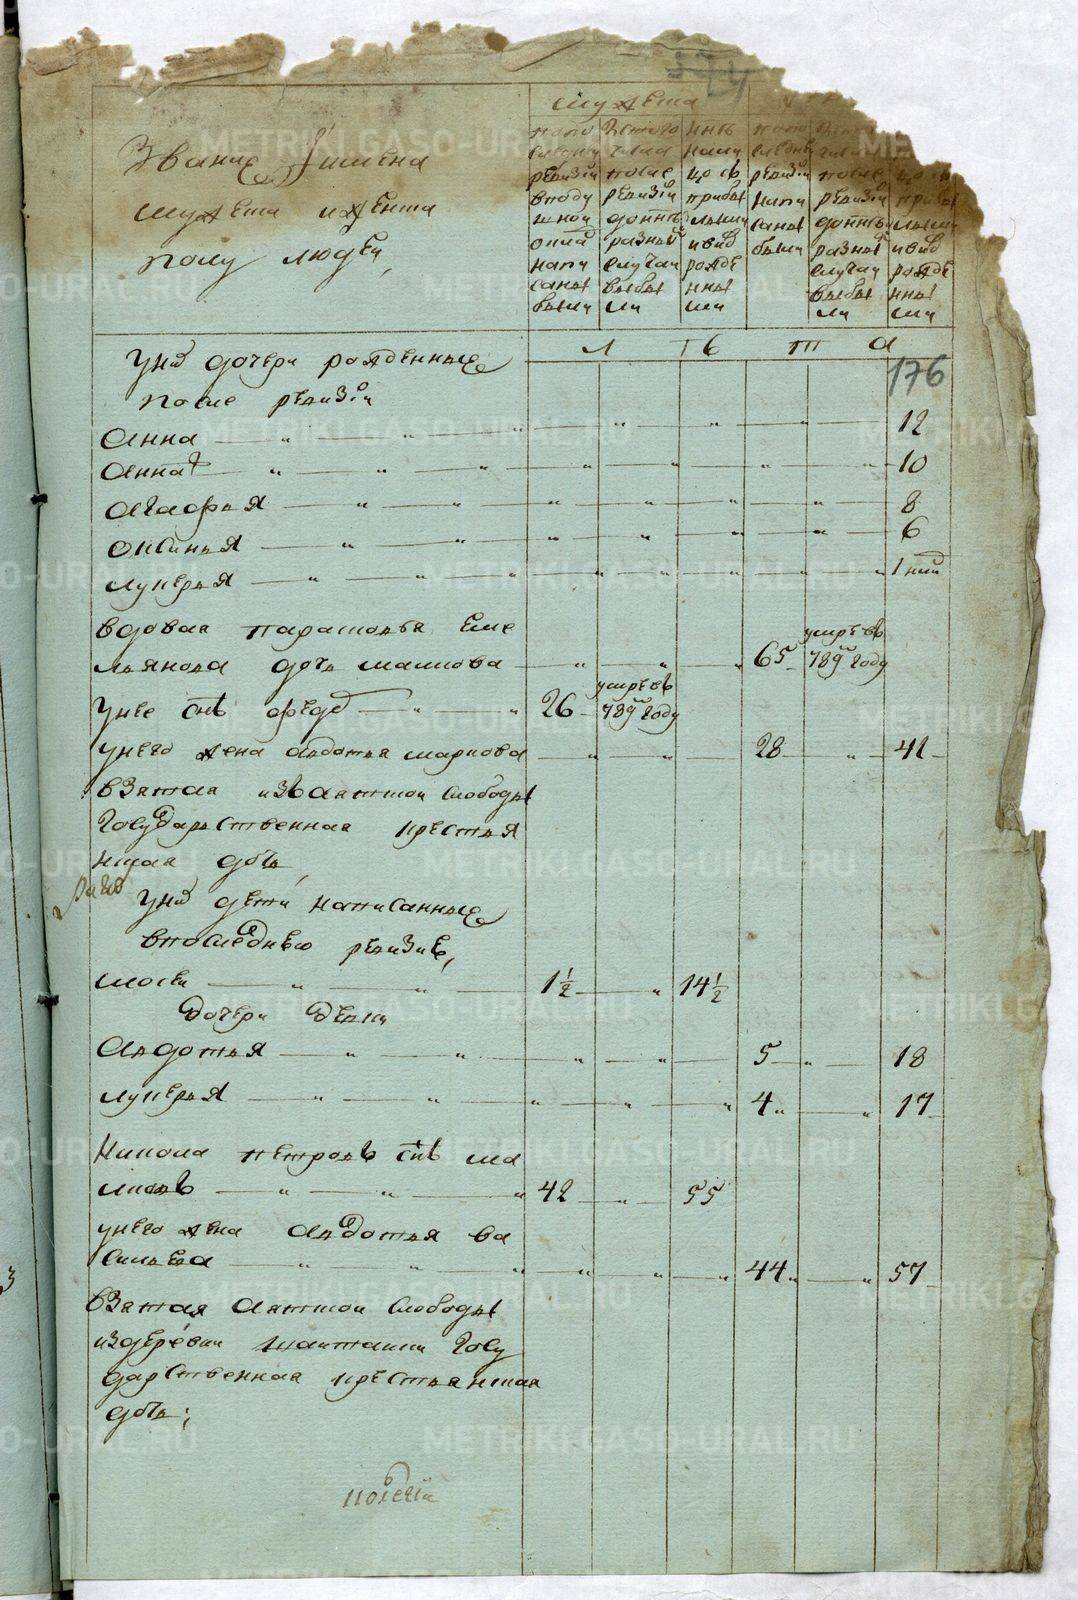 Звание Iимена
мужеска иженска
полу людей
мужеска
попо
следней
ревизiи
вподу
шной
окла
напи
саны
были
Изтого
числа
после
ревизiи
допнь
разны
случаи
выбы
ли
ннь
нали
цо съ
прибы
лыми
ивнв
рожде
нны
ми
попо
следней
ревизiи
напи
саны
были
после
ревизiи
допнь
разны
случаи
выбы
ли
цо съ
прибы
лыми
ивнв
рожде
нны
ми
л ѣ т а
176
Уних дочери рожденные
после ревизiи
Анна 12
Анна 2 10
Агафья 8
Оксинья 6
Лукерья 1 нид
вдовая парасковья Еме
льянова дочь малкова 65 умре въ 789м году
Унее сынъ федо 26 умре въ 789м году
унего жена авдотья маркова 28 41
взятая изъ аятской слободы
государственная крестья
нская дочь
Уних дети написанные
впоследнею ревизию,
мосеи 1½ 14½
дочери девки
Авдотья 5 18
лукерья 4 17
Никола петровъ сынъ ма
лковъ 42 55
унего жена авдотья ва
сильева 44 57
взятая аятской слободы
издеревни шайтанки госу
дарственная крестьянская
дочь;
METRIKI.GASO-URAL.RU